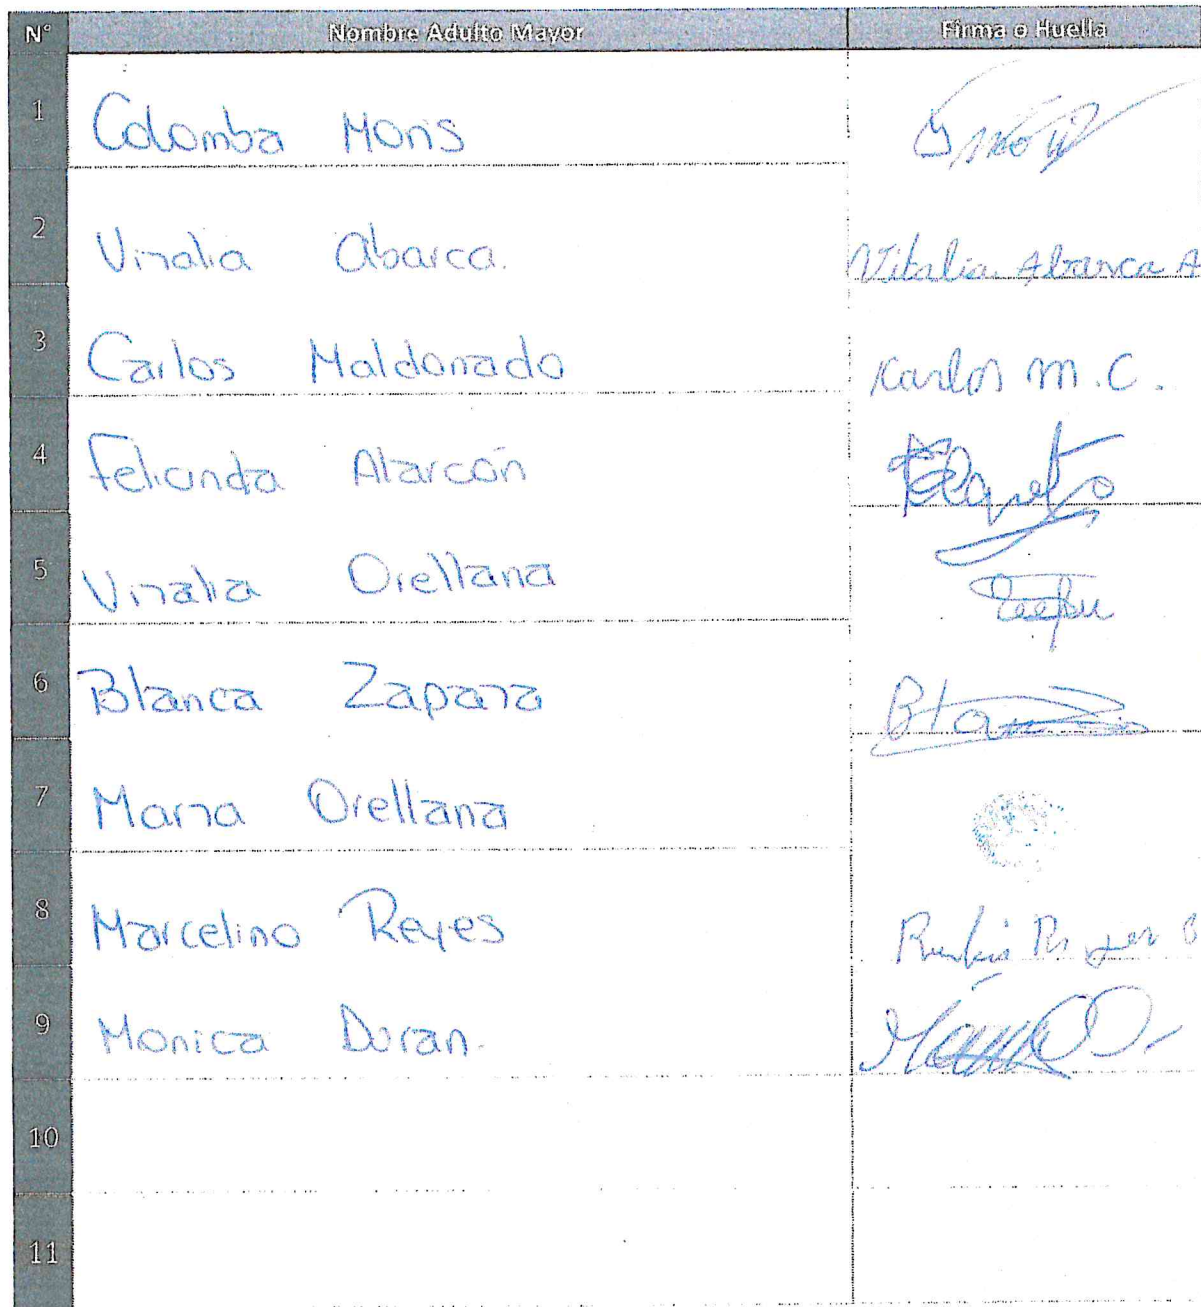 N° Nombre Adulto Mayor Firma o Huella
1 Colomba Moris
2 Vitalia Abarca. Vitalia Abarca A
3 Carlos Maldonado Karlos M.C.
4 Alarcón
5 Vitalia Orellana
6 Blanca Zapata
7 Orellana
8 Marcelino Reyes
9 Monica Duran.
10
11